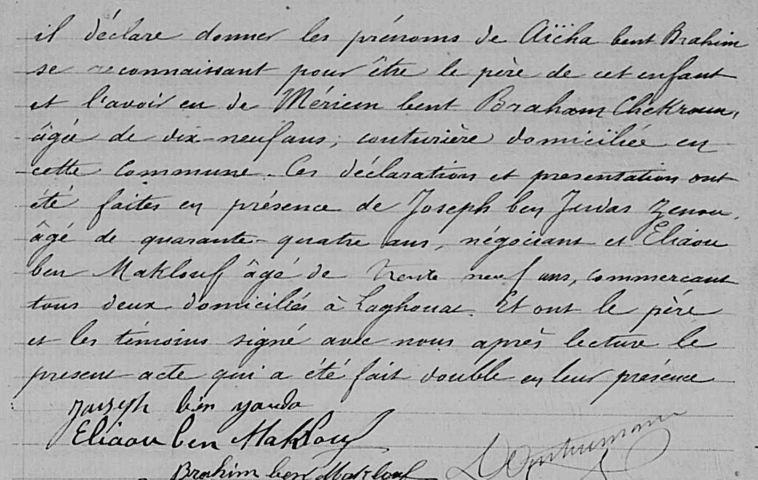 il déclare donner les prénoms de Aïcha bent Brahim
se reconnaissant pour être le père de cet enfant
et l'avoir eu de Mériem bent Braham Chekroun,
âgée de dix-neuf ans, couturière domiciliée en
cette commune. Ces déclaration et presentation ont
été faites en présence de Joseph ben Judas Zenou,
âgé de quarante-quatre ans, négociant et Eliaou
ben Maklouf âgé de trente neuf ans, commercant
tous deux domiciliés à Laghouat. Et ont le père
et les témoins signé avec nous après lecture le
present acte qui a été fait double en leur présence
Joseph ben yauda
Eliaou ben Maklouf
Brahim ben Maklouf